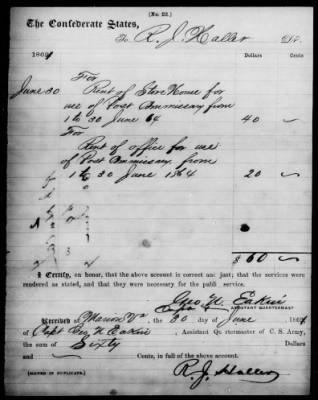 (No. 22.)
The Confederate States,
To R. J. Haller Dr.
1864 Dollars Cents
June 30 For
Rent of Store House for
use of Post Commissary from
1 to 30 June 64 40 ~
For
Rent of office for use
of Post Commissary from
1 to 30 June 1864 20 ~
$ 60 ~
I Certify, on honor, that the above account is correct and just; that the services
rendered as stated, and that they were necessary for the public service.
Geo W. Eakin
ASSISTANT QUARTERMAST
Received at Marion Va, the 30 of June, 1864
of Capt Geo W Eakin, Assistant Quartermaster of C. S. Army,
the sum of Sixty Dollars
and ~ Cents, in full of the above account.
R. J. Haller
(SIGNED IN DUPLICATE.)